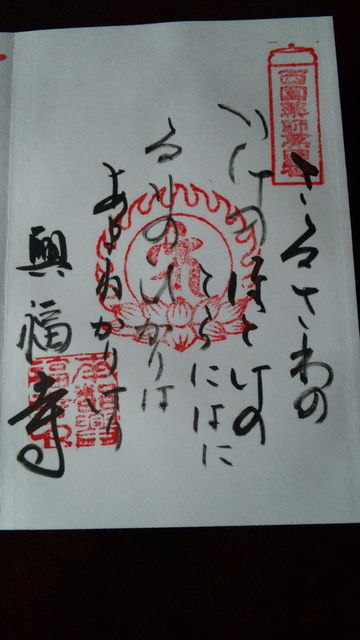 西國薬師第四番
さるさわの
いけのほとけの
てらにはに
るりのひかりは
あまねかりけり
興福寺